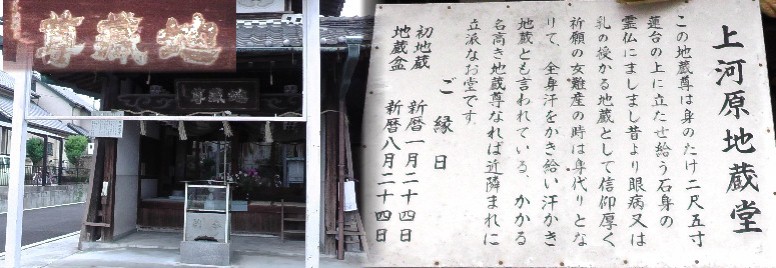 地蔵尊
地蔵尊
上河原地蔵堂
この地蔵尊は身のたけ二尺五寸
蓮台の上に立たせ給う石身の
霊仏にましまし昔より眼病又は
乳の授かる地蔵として信仰厚く
祈願の女難産の時は身代りとな
りて、全身汗をかき給い汗かき
地蔵とも言われている、かかる
名高き地蔵尊なれば近隣まれに
立派なお堂です。
ご縁日
初地蔵 新暦一月二十四日
地蔵盆 新暦八月二十四日